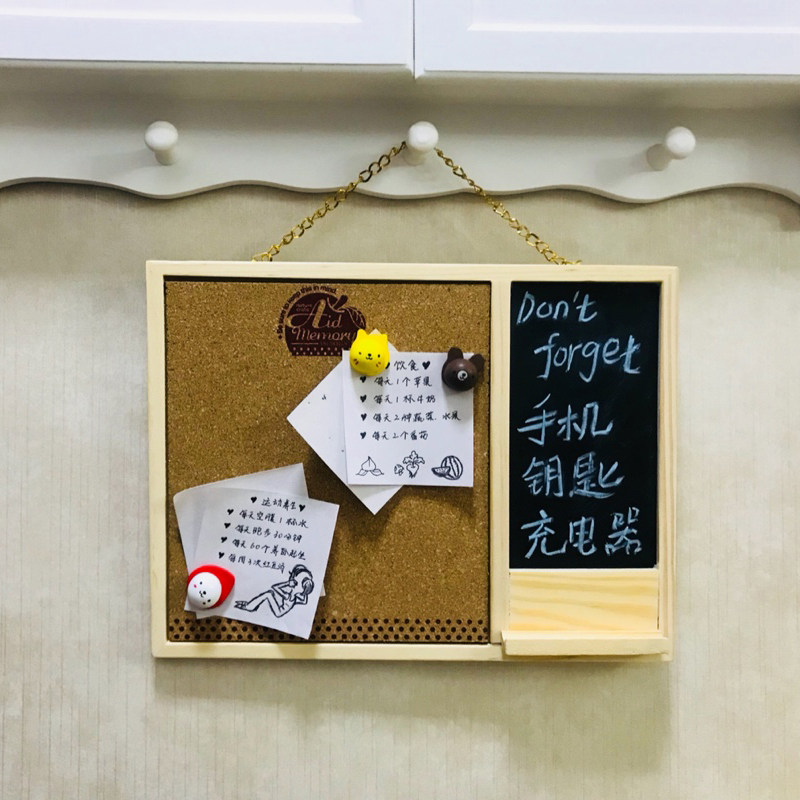 Be sure to keep this in mind
Aid
Memory
♥饮食♥
♥ 每天1个苹果
♥ 每天1杯牛奶
♥ 每天2种蔬菜 水果
♥ 每天2个番茄
♥ 运动养生♥
♥ 每天空腹1杯水
♥ 每天跑步30分钟
♥ 每天60个仰卧起坐
Don't
forget
手机
钥匙
充电器